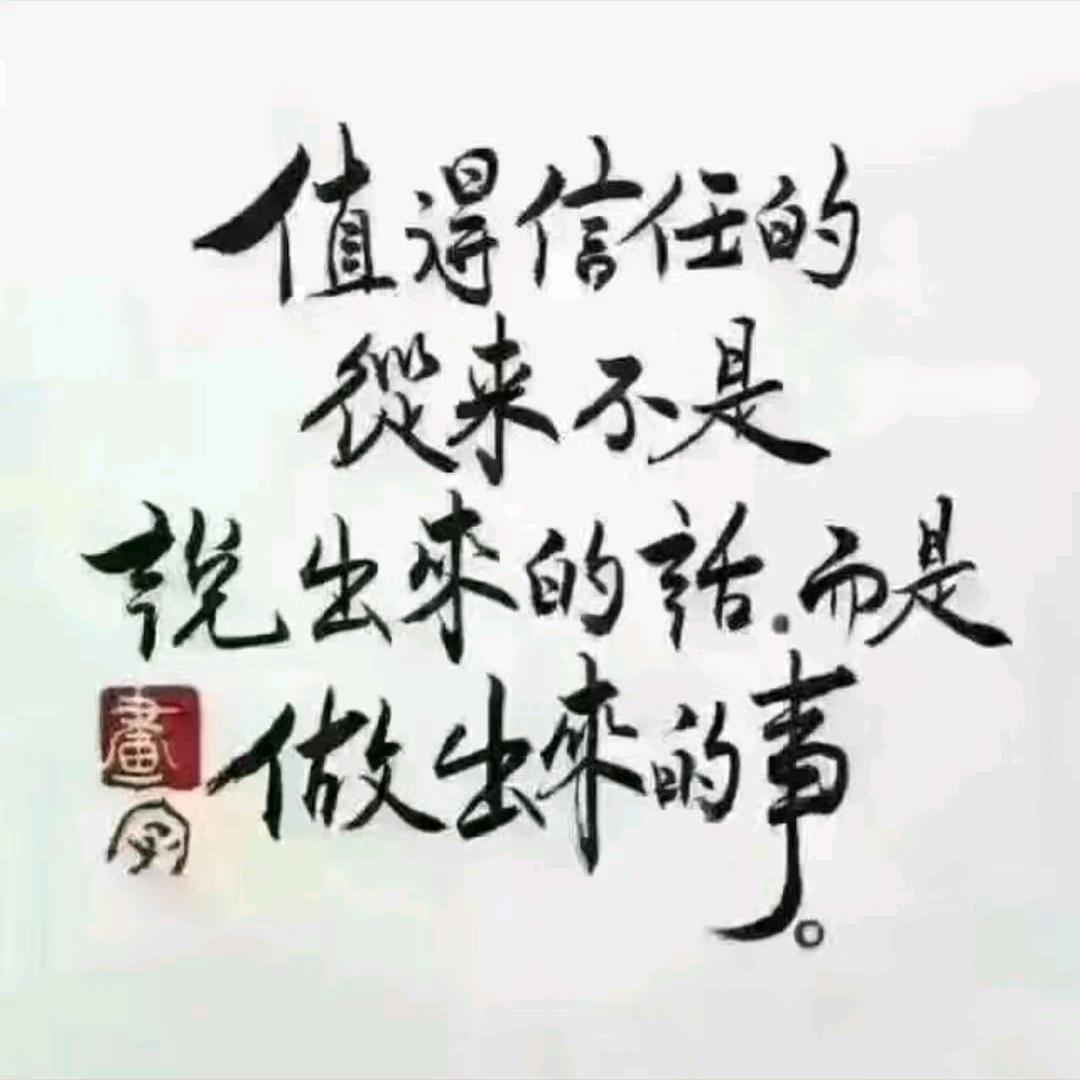 值得信任的
從来不是
説出來的話.而是
做出來的事。
畫